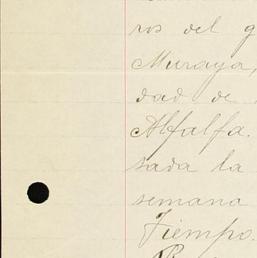 ros del g
Muraya,
dad de
Alfalfa.
sada la
semana
Tiempo.